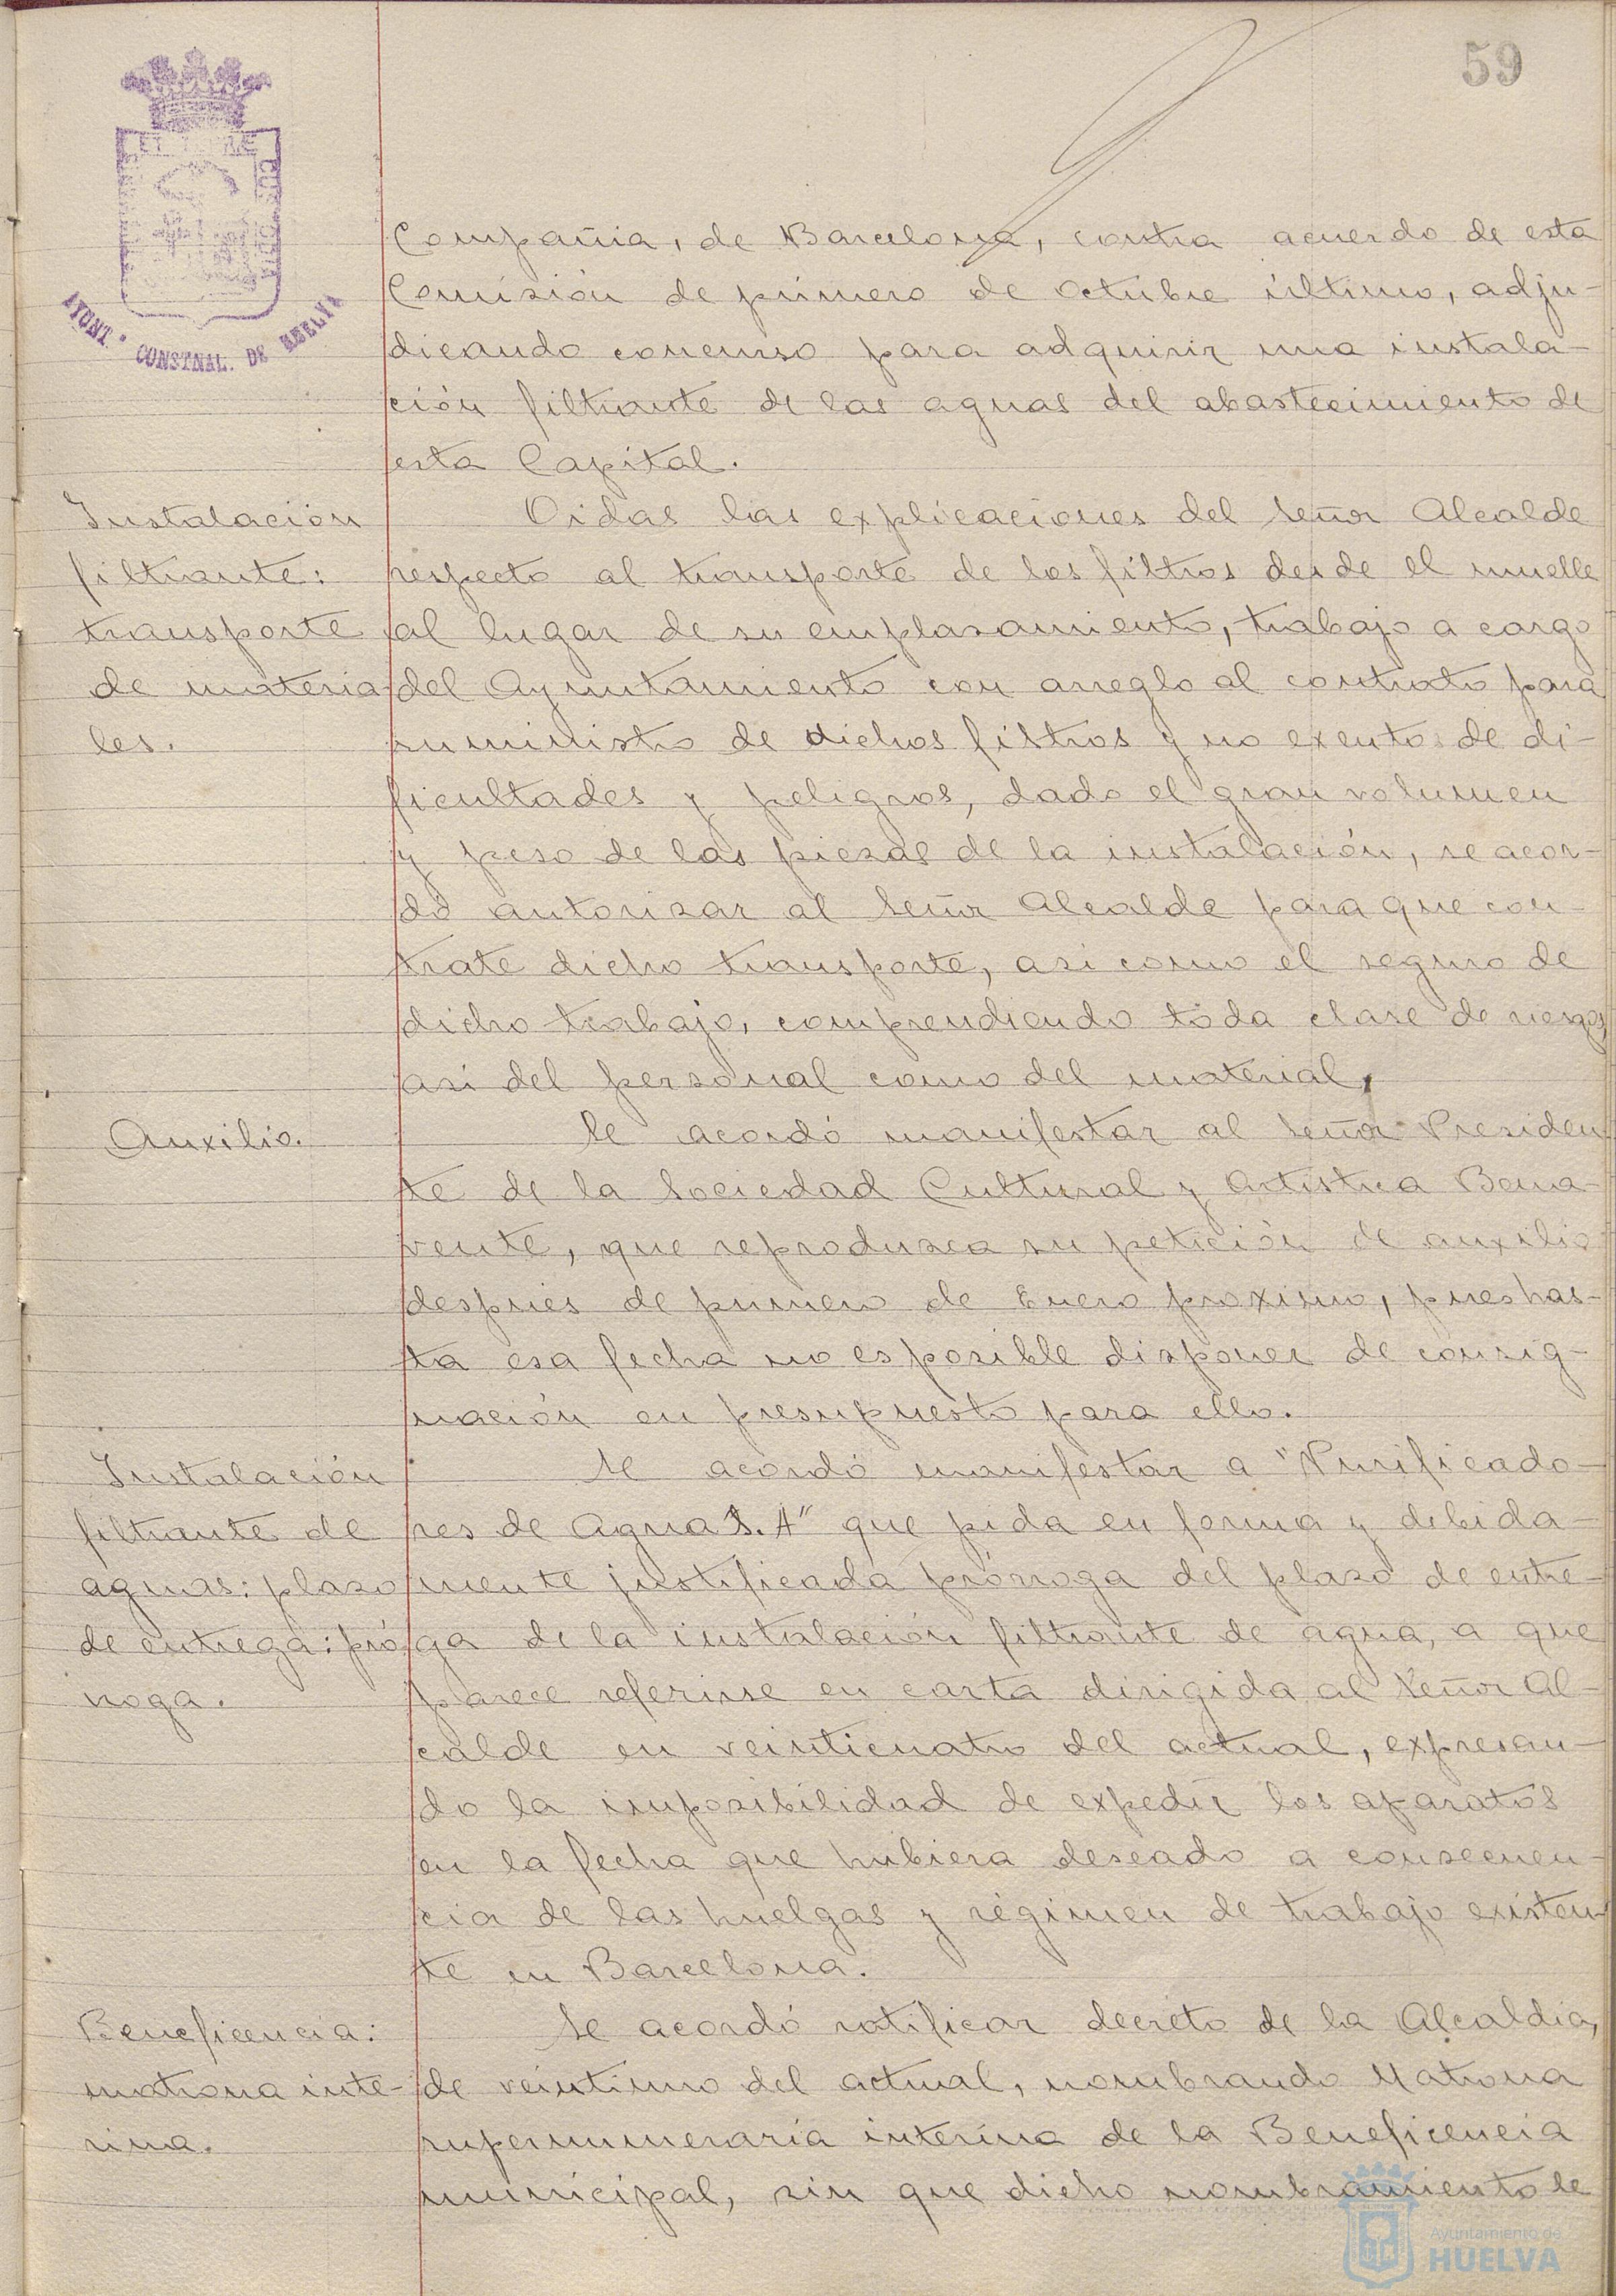 59
AYUNT.º CONSTNAL. DE HUELVA
Compañia, de Barcelona, contra acuerdo de esta
Comisión de primero de Octubre último, adju-
dicando concurso para adquirir una instala-
ción filtrante de las aguas del abastecimiento de
esta Capital.
Instalación
filtrante:
transporte
de materia
les.
Oidas las explicaciones del Señor Alcalde
respecto al transporte de los filtros desde el muelle
al lugar de su emplasamiento, trabajo a cargo
del Ayuntamiento con arreglo al contrato para
suministro de dichos filtros y no exento de di-
ficultades y peligros, dado el gran volumen
y peso de las piezas de la instalación, se acor-
dó autorizar al Señor Alcalde para que con-
trate dicho transporte, asi como el seguro de
dicho trabajo, comprendiendo toda clase de riesgos,
asi del personal como del material.
Auxilio.
Se acordó manifestar al Señor Presiden
te de la Sociedad Cultural y Artistica Bena-
vente, que reproduzca su petición de auxilio
después de primero de Enero proximo, pues has-
ta esa fecha no es posible disponer de consig-
nación en presupuesto para ello.
Instalación
filtrante de
aguas: plazo
de entrega: pró
rroga.
Se acordó manifestar a "Purificado-
res de Agua S. A" que pida en forma y debida-
mente justificada prórroga del plazo de entre-
ga de la instalación filtrante de agua, a que
parece referirse en carta dirigida al Señor Al-
calde en veinticuatro del actual, expresan-
do la imposibilidad de expedir los aparatos
en la fecha que hubiera deseado a consecuen-
cia de las huelgas y régimen de trabajo existen-
te en Barcelona.
Beneficencia:
matrona inte-
rina.
Se acordó ratificar decreto de la Alcaldia,
de veintiuno del actual, nombrando Matrona
supernumeraria interina de la Beneficencia
municipal, sin que dicho nombramiento le
Ayuntamiento de
HUELVA